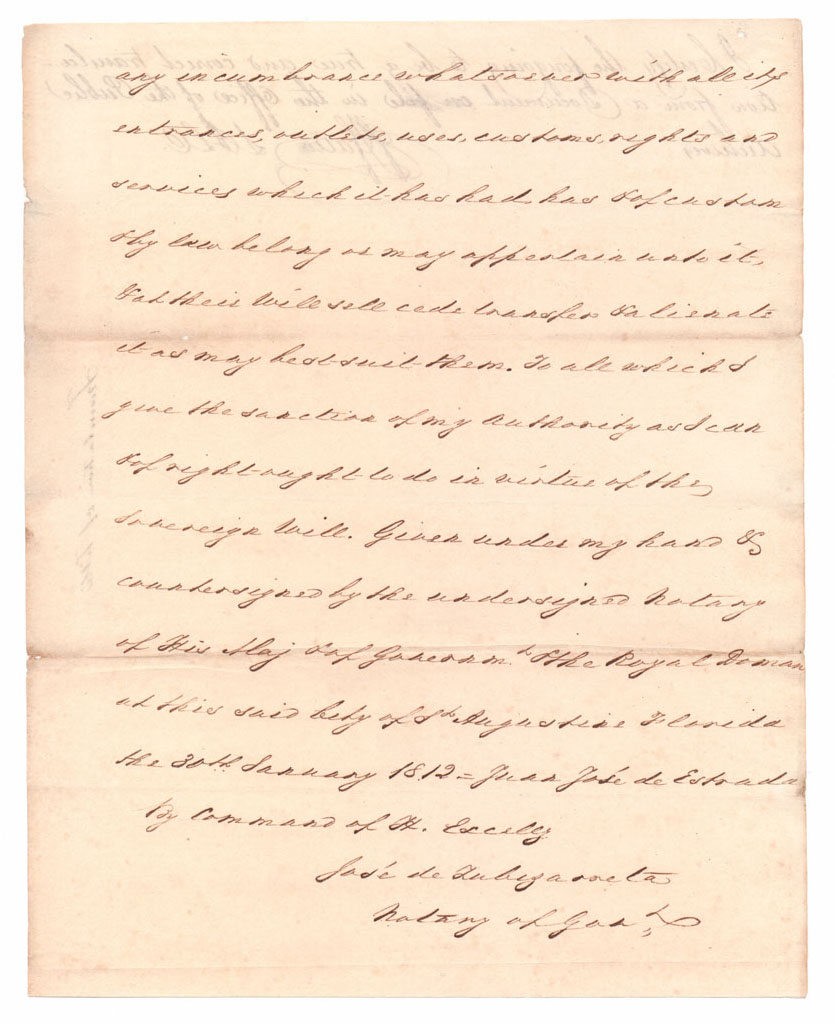 any incumbrance whatsoever with all its
entrances, outlets, uses, customs, rights and
services which it has had, has & of custom
& by law belong or may appertain unto it,
& at their Will sell cede transfer & alienate
it as may best suit them. To all which I
give the sanction of my Authority as I can
& of right ought to do in virtue of the
Sovereign Will. Given under my hand &
countersigned by the undersigned Notary
of His Maj & of Governmt & the Royal Domain
at this said City of St Augustine Florida
the 30th January 1812 = Juan José de Estrada
By Command of H. Excelly
José de Zubizarreta
Notary of Govt